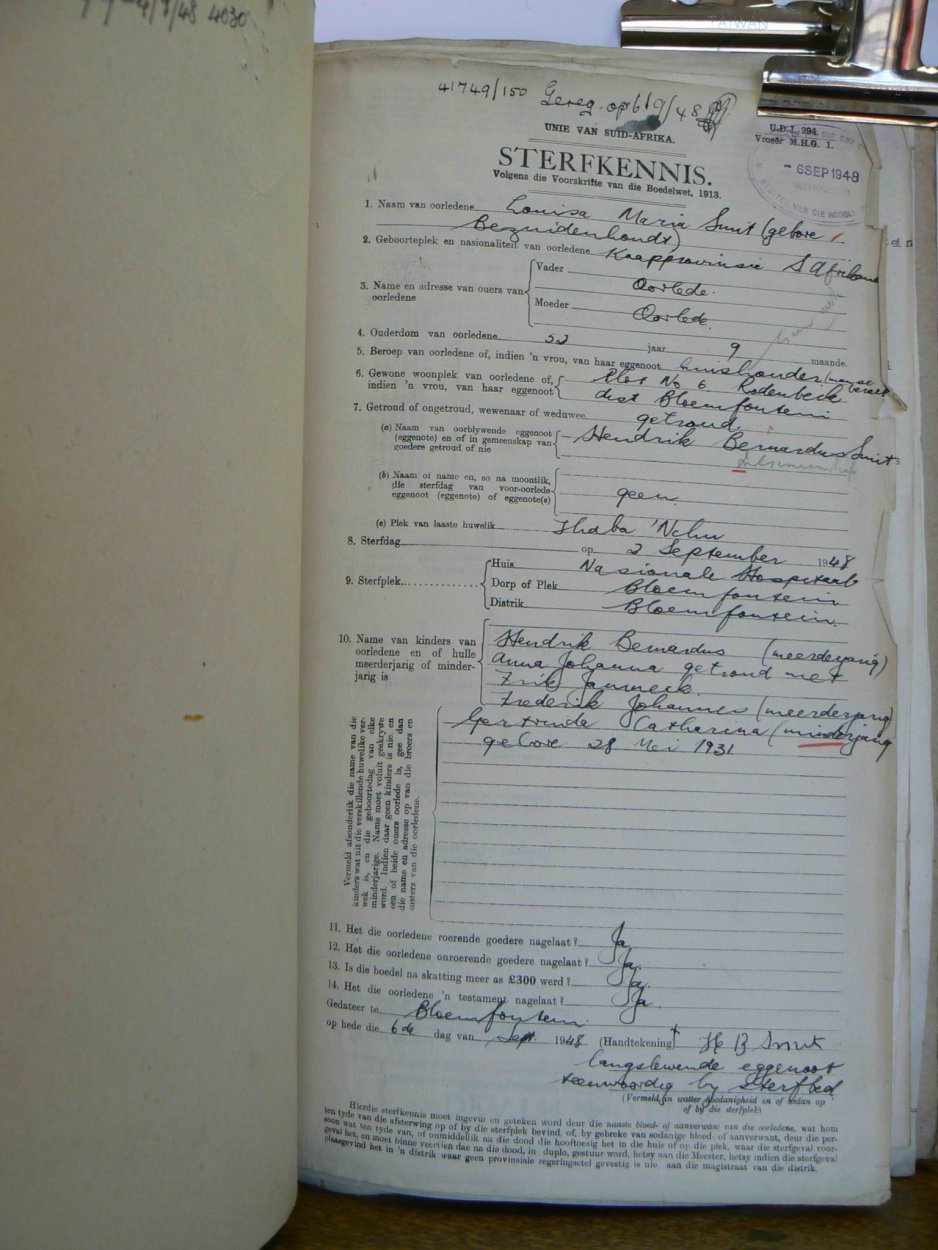 4/9/48 4030
TAIWAN
41749/150 Gereg. op 6/9/48
UNIE VAN SUID-AFRIKA.
U.D.J. 294.
Vroeër M.H.G. 1.
STERFKENNIS.
Volgens die Voorskrifte van die Boedelwet, 1913.
- 6 SEP 1948
VAN DIE HOOG
1. Naam van oorledene Louisa Maria Smit (gebore
Bezuidenhoudt)
2. Geboorteplek en nasionaliteit van oorledene Kaapprovinsie S Afrikaans
3. Name en adresse van ouers van oorledene
Vader Oorlede.
Moeder Oorlede.
4. Ouderdom van oorledene 52 jaar 9 maande.
5. Beroep van oorledene of, indien 'n vrou, van haar eggenoot huishouder
6. Gewone woonplek van oorledene of, Plot No 6 Rodenbeck
indien 'n vrou, van haar eggenoot dist Bloemfontein
7. Getroud of ongetroud, wewenaar of weduwee getroud
(a) Naam van oorblywende eggenoot Hendrik Bernardus Smit
(eggenote) en of in gemeenskap van
goedere getroud of nie
(b) Naam of name en, so na moontlik,
die sterfdag van voor-oorlede
eggenoot (eggenote) of eggenote(s) geen
(c) Plek van laaste huwelik Thaba 'Nchu
8. Sterfdag op 2 September 1948
9. Sterfplek
Huis Nasionale Hospitaal
Dorp of Plek Bloemfontein
Distrik Bloemfontein.
10. Name van kinders van
oorledene en of hulle
meerderjarig of minder-
jarig is
Hendrik Bernardus (meerderjarig)
Anna Johanna getroud met
Frik Janneck.
Frederik Johannes (meerderjarig)
Gertruida Catharina (minderjarig
gebore 28 Mei 1931
Vermeld afsonderlik die name van die
kinders wat uit die verskillende huwelike ver-
wek is, en die geboortedag van elke
minderjarige. Name moet voluit geskrywe
word. Indien daar geen kinders is nie, en
een of beide ouers oorlede is, gee dan
die name en adresse op van die broers en
susters van die oorledene.
11. Het die oorledene roerende goedere nagelaat? Ja
12. Het die oorledene onroerende goedere nagelaat? Ja.
13. Is die boedel na skatting meer as £300 werd? Ja.
14. Het die oorledene 'n testament nagelaat? Ja.
Gedateer te Bloemfontein
op hede die 6de dag van Sept. 1948 (Handtekening) H B Smit
langslewende eggenoot
teenwoordig by Sterfbed
(Vermeld in watter hoedanigheid en of aldan op
of by die sterfplek)
Hierdie sterfkennis moet ingevul en geteken word deur die naaste bloed- of aanverwant van die oorledene, wat hom
ten tyde van die afsterwing op of by die sterfplek bevind, of, by gebreke van sodanige bloed- of aanverwant, deur die per-
soon wat ten tyde van, of onmiddellik na die dood die hooftoesig het in die huis of op die plek, waar die sterfgeval voor-
geval het, en moet binne veertien dae na die dood, in duplo, gestuur word, hetsy aan die Meester, hetsy indien die sterfgeval
plaasgevind het in 'n distrik waar geen provinsiale regeringsetel gevestig is nie, aan die magistraat van die distrik.